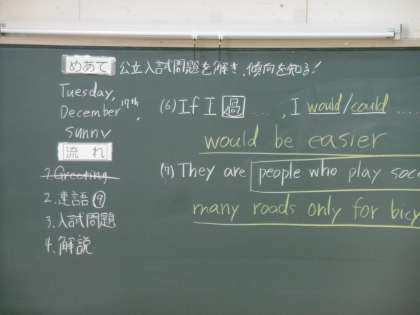 めあて 公立入試問題を解き、傾向を知る!
Tuesday,
December 17th,
sunny
流れ
1. Greeting
2. 連語⑨
3. 入試問題
4. 解説
(6) If I 過 ...., I would/could ....
would be easier
(7) They are people who play socc
many roads only for bicy